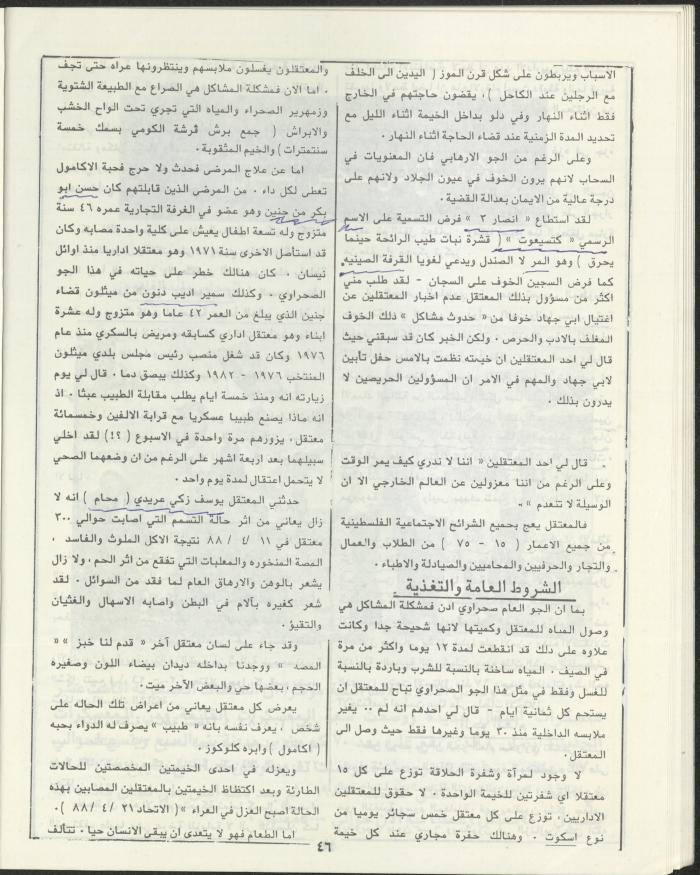 الاسباب ويربطون على شكل قرن الموز ( اليدين الى الخلف
مع الرجلين عند الكاحل ) ، يقضون حاجتهم في الخارج
فقط اثناء النهار وفي دلو بداخل الخيمة اثناء الليل مع
تحديد المدة الزمنية عند قضاء الحاجة اثناء النهار .
وعلى الرغم من الجو الارهابي فان المعنويات في
السحاب لانهم يرون الخوف في عيون الجلاد ولانهم على
درجة عالية من الايمان بعدالة القضية .
لقد استطاع « انصار ٣ » فرض التسمية على الاسم
الرسمي « كتسيعوت » ( قشرة نبات طيب الرائحة حينما
يحرق ) وهو المر لا الصندل ويدعى لغويا القرفة الصينيه
كما فرض السجين الخوف على السجان - لقد طلب مني
اكثر من مسؤول بذلك المعتقل عدم اخبار المعتقلين عن
اغتيال ابي جهاد خوفا من « حدوث مشاكل » ذلك الخوف
المغلف بالادب والحرص . ولكن الخبر كان قد سبقني حيث
قال لي احد المعتقلين ان خيمته نظمت بالامس حفل تأبين
لابي جهاد والمهم في الامر ان المسؤولين الحريصين لا
يدرون بذلك .
قال لي احد المعتقلين « اننا لا ندري كيف يمر الوقت
وعلى الرغم من اننا معزولين عن العالم الخارجي الا ان
الوسيلة لا تنعدم » .
فالمعتقل يعج بجميع الشرائح الاجتماعية الفلسطينية
من جميع الاعمار ( ١٥ - ٧٥ ) من الطلاب والعمال
والتجار والحرفيين والمحاميين والصيادلة والاطباء .
الشروط العامة والتغذية
بما ان الجو العام صحراوي اذن فمشكلة المشاكل هي
وصول المياه للمعتقل وكميتها لانها شحيحة جدا وكانت
علاوه على ذلك قد انقطعت لمدة ١٢ يوما واكثر من مرة
في الصيف . المياه ساخنة بالنسبة للشرب وباردة بالنسبة
للغسل وفقط في مثل هذا الجو الصحراوي تباح للمعتقل ان
يستحم كل ثمانية ايام - قال لي احدهم انه لم .. يغير
ملابسه الداخلية منذ ٣٠ يوما وغيرها فقط حيث وصل الى
المعتقل .
لا وجود لمرآة وشفرة الحلاقة توزع على كل ١٥
معتقلا اي شفرتين للخيمة الواحدة . لا حقوق للمعتقلين
الاداريين ، توزع على كل معتقل خمس سجائر يوميا من
نوع اسكوت . وهنالك حفرة مجاري عند كل خيمة
والمعتقلون يغسلون ملابسهم وينتظرونها عراه حتى تجف
. اما الان فمشكلة المشاكل هي الصراع مع الطبيعة الشتوية
وزمهرير الصحراء والمياه التي تجري تحت الواح الخشب
والابراش ( جمع برش ثرشة الكومي بسمك خمسة
سنتمترات ) والخيم المثقوبة .
اما عن علاج المرضى فحدث ولا حرج فحبة الاكامول
تعطى لكل داء . من المرضى الذين قابلتهم كان حسن ابو
بكر من جنين وهو عضو في الغرفة التجارية عمره ٤٦ سنة
متزوج وله تسعة اطفال يعيش على كلية واحدة مصابه وكان
قد استأصل الاخرى سنة ١٩٧١ وهو معتقلا اداريا منذ اوائل
نيسان . كان هنالك خطر على حياته في هذا الجو
الصحراوي . وكذلك سمير اديب دنون من ميثلون قضاء
جنين الذي يبلغ من العمر ٤٢ عاما وهو متزوج وله عشرة
ابناء وهو معتقل اداري كسابقه ومريض بالسكري منذ عام
١٩٧٦ وكان قد شغل منصب رئيس مجلس بلدي ميثلون
المنتخب ١٩٧٦ - ١٩٨٢ وكذلك يبصق دما . قال لي يوم
زيارته انه ومنذ خمسة ايام يطلب مقابلة الطبيب عبثا . اذ
انه ماذا يصنع طبيبا عسكريا مع قرابة الالفين وخمسمائة
معتقل ، يزورهم مرة واحدة في الاسبوع ( ؟! ) لقد اخلي
سبيلهما بعد اربعة اشهر على الرغم من ان وضعهما الصحي
لا يتحمل اعتقال لمدة يوم واحد .
حدثني المعتقل يوسف زكي عريدي ( محام ) انه لا
زال يعاني من اثر حالة التسمم التي اصابت حوالي ٣٠٠
معتقل في ١١ / ٤ / ٨٨ نتيجة الاكل الملوث والفاسد ،
المصة المنخوره والمعلبات التي تفقع من اثر الحم ، ولا زال
يشعر بالوهن والارهاق العام لما فقد من السوائل . لقد
شعر كغيره بآلام في البطن واصابه الاسهال والغثيان
والتقيؤ .
وقد جاء على لسان معتقل آخر « قدم لنا خبز » «
المصه » ووجدنا بداخله ديدان بيضاء اللون وصغيره
الحجم ، بعضها حي والبعض الآخر ميت .
يعرض كل معتقل يعاني من اعراض تلك الحاله على
شخص ، يعرف نفسه بانه « طبيب » يصرف له الدواء بحبه
( اكامول ) وابره كلوكوز .
ويعزله في احدى الخيمتين المخصصتين للحالات
الطارئة وبعد اكتظاظ الخيمتين بالمعتقلين المصابين بهذه
الحالة اصبح العزل في العراء » ( الاتحاد ٢١ / ٤ / ٨٨ ) .
اما الطعام فهو لا يتعدى ان يبقى الانسان حيا . تتألف
٤٦